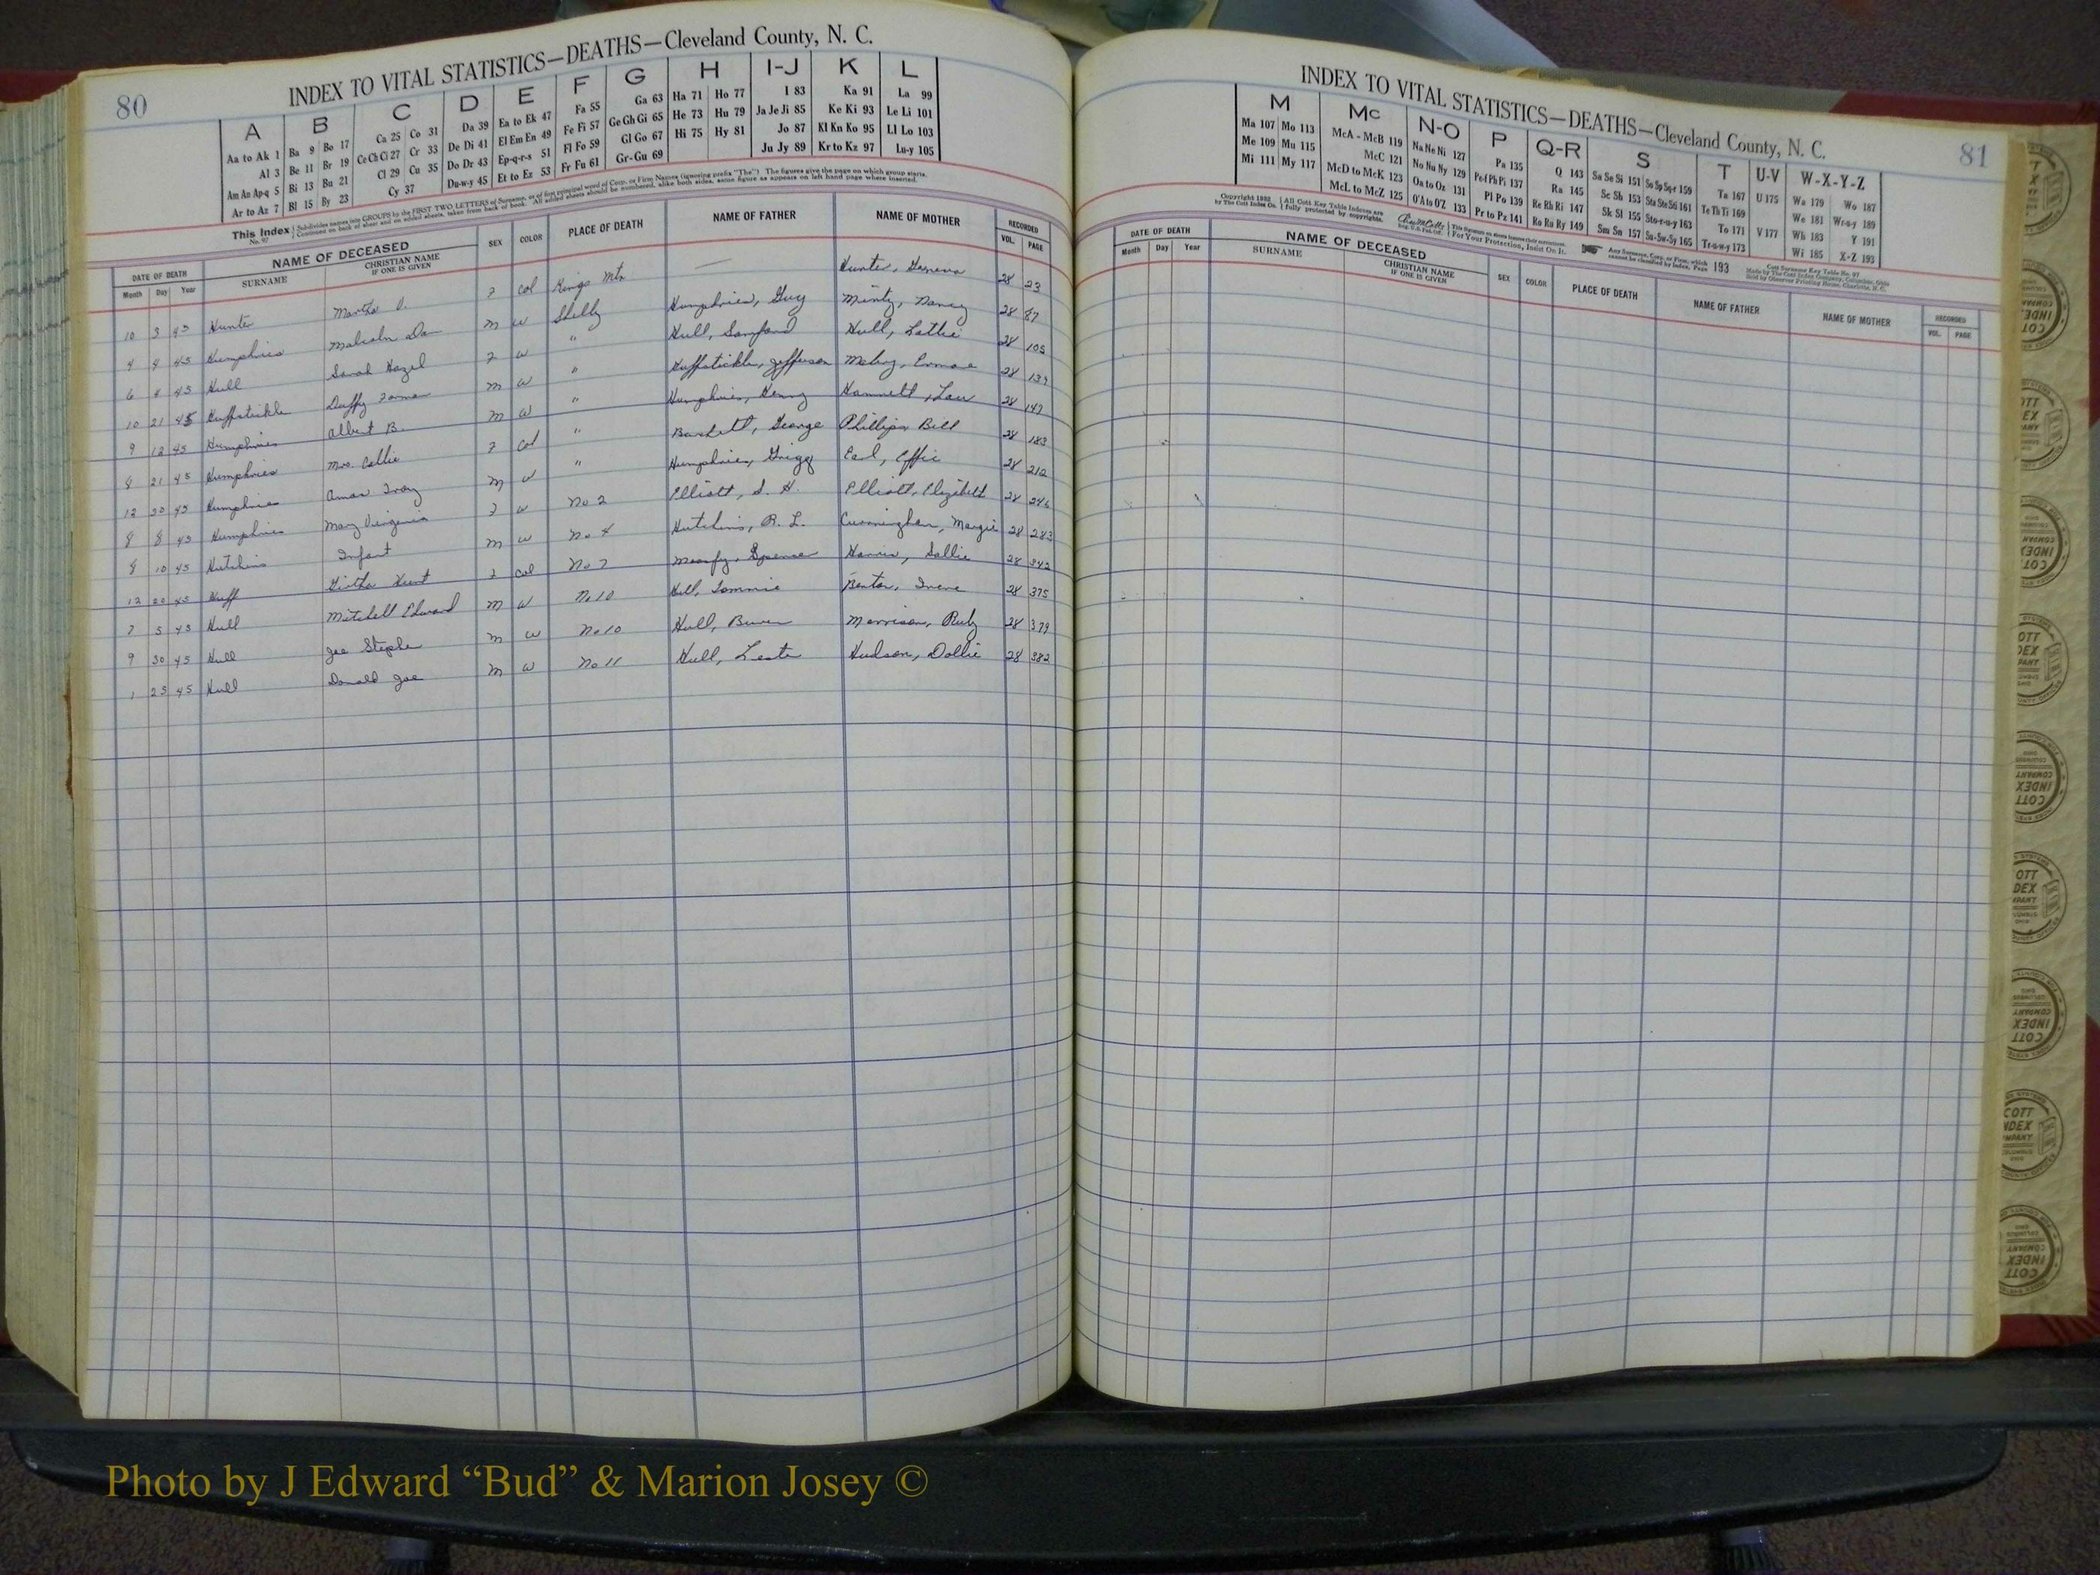 80
INDEX TO VITAL STATISTICS—DEATHS—Cleveland County, N. C.
A B C D E F G H I-J K L
Aa to Ak 1 Ba 9 Bo 17 Ca 25 Co 31 Da 39 Ea to Ek 47 Fa 55 Ga 63 Ha 71 Ho 77 I 83 Ka 91 La 99
Al 3 Be 11 Br 19 Ce Ch Ci 27 Cr 33 De Di 41 El Em En 49 Fe Fi 57 Ge Gh Gi 65 He 73 Hu 79 Ja Je Ji 85 Ke Ki 93 Le Li 101
Am An Ap-q 5 Bi 13 Bu 21 Cl 29 Cu 35 Do Dr 43 Ep-q-r-s 51 Fl Fo 59 Gl Go 67 Hi 75 Hy 81 Jo 87 Kl Kn Ko 95 Ll Lo 103
Ar to Az 7 Bl 15 By 23 Cy 37 Du-w-y 45 Et to Ez 53 Fr Fu 61 Gr-Gu 69 Ju Jy 89 Kr to Kz 97 Lu-y 105
This Index No. 97 Subdivides names into GROUPS by the FIRST TWO LETTERS of Surname, or of first principal word of Corp. or Firm Names (ignoring prefix "The"). The figures give the page on which group starts.
Continued on back of sheet and on added sheets, taken from back of book. All added sheets should be numbered, alike both sides, same figure as appears on left hand page where inserted.
DATE OF DEATH NAME OF DECEASED SEX COLOR PLACE OF DEATH NAME OF FATHER NAME OF MOTHER RECORDED
Month Day Year SURNAME CHRISTIAN NAME IF ONE IS GIVEN VOL. PAGE
10 3 45 Hunter Martha 7 Col Kings Mtn — Hunter, Geneva 28 23
4 4 45 Humphries Malcolm M W Shelby Humphries, Guy Mintz, Nancy 28 87
6 4 45 Hull Sarah Hazel 7 W " Hull, Sanford Hull, Lottie 28 105
10 21 45 Duffy M W " Huffstickler, Jefferson 28
9 12 45 Humphries Albert B. M W " Humphries, Henry 28 147
8 21 45 Humphries Mrs. Callie 7 Col " George Phillips, Bell 28 183
12 30 45 Humphries M W " Humphries, Grigg Earl, Effie 28 212
8 8 45 Humphries Mary Virginia 7 W No 2 Elliott, Elliott, Elizabeth 28 246
8 10 45 Hutchins Infant M W No. 4 Hutchins, R. L. Cunningham, Margie 28 283
12 20 45 Huff 7 Col No 7 Harris, Sallie 28 342
7 5 45 Hull Mitchell Edward M W No 10 Hull, Tommie Benton, Irene 28 375
9 30 45 Hull Joe Stephe M W No 10 Hull, Morrison, Ruby 28 379
1 23 45 Hull Donald Joe M W No 11 Hull, Leste Hudson, Dollie 28 382
81
INDEX TO VITAL STATISTICS—DEATHS—Cleveland County, N. C.
M Mc N-O P Q-R S T U-V W-X-Y-Z
Ma 107 Mo 113 McA - McB 119 Na Ne Ni 127 Pa 135 Q 143 Sa Se Si 151 So Sp Sq-r 159 Ta 167 U 175 Wa 179 Wo 187
Me 109 Mu 115 McC 121 No Nu Ny 129 Pe-f Ph Pi 137 Ra 145 Sc Sh 153 Sta Ste Sti 161 Te Th Ti 169 We 181 Wr-u-y 189
Mi 111 My 117 McD to McK 123 Oa to Oz 131 Pl Po 139 Re Rh Ri 147 Sk Sl 155 Sto-r-u-y 163 To 171 V 177 Wh 183 Y 191
McL to McZ 125 O'A to O'Z 133 Pr to Pz 141 Ro Ru Ry 149 Sm Sn 157 Su-Sw-Sy 165 Tr-u-w-y 173 Wi 185 X-Z 193
Copyright 1932 by The Cott Index Co. All Cott Key Table Indexes are fully protected by copyrights.
For Your Protection, Insist On It.
Any Surname, Corp. or Firm, which cannot be classified by Index, Page 193
Cott Surname Key Table No. 97
Made by The Cott Index Company, Columbus, Ohio
Sold by Observer Printing House, Charlotte, N. C.
DATE OF DEATH NAME OF DECEASED SEX COLOR PLACE OF DEATH NAME OF FATHER NAME OF MOTHER RECORDED
Month Day Year SURNAME CHRISTIAN NAME IF ONE IS GIVEN VOL. PAGE
COTT INDEX COMPANY
Photo by J Edward “Bud” & Marion Josey ©